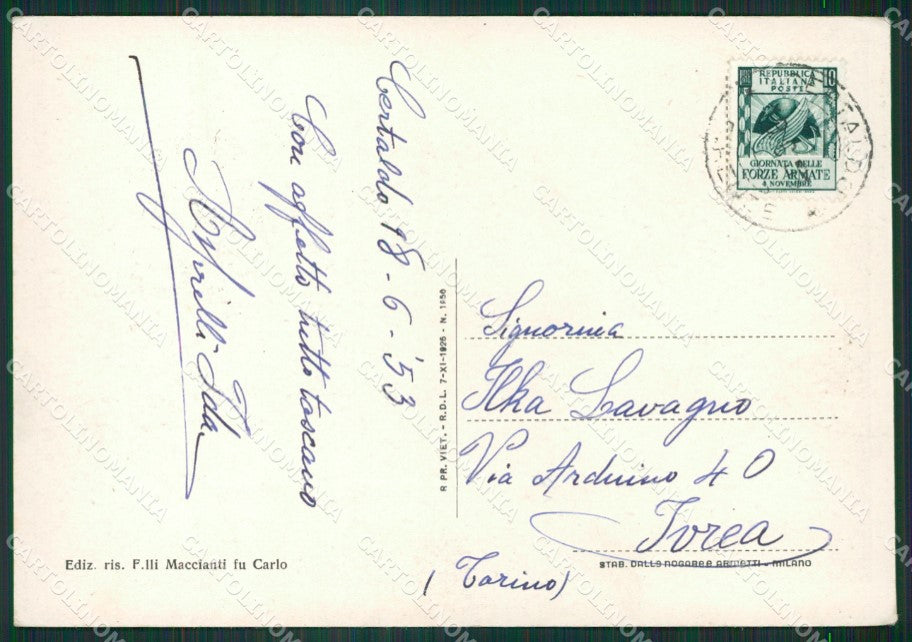 Certaldo 18-6-'53
Con affetto tutto toscano
Ida
REPUBBLICA
ITALIANA
POSTE
10
GIORNATA DELLE
FORZE ARMATE
4 NOVEMBRE
CERTALDO
Signorina
Ilka Lavagno
Via Arduino 40
Ivrea
(Torino)
R PR. VIET. - R.D.L. 7-XI-1925 - N. 1950
Ediz. ris. F.lli Maccianti fu Carlo
STAB. DALLE NOGARE E ARMETTI - MILANO
CARTOLINOMANIA